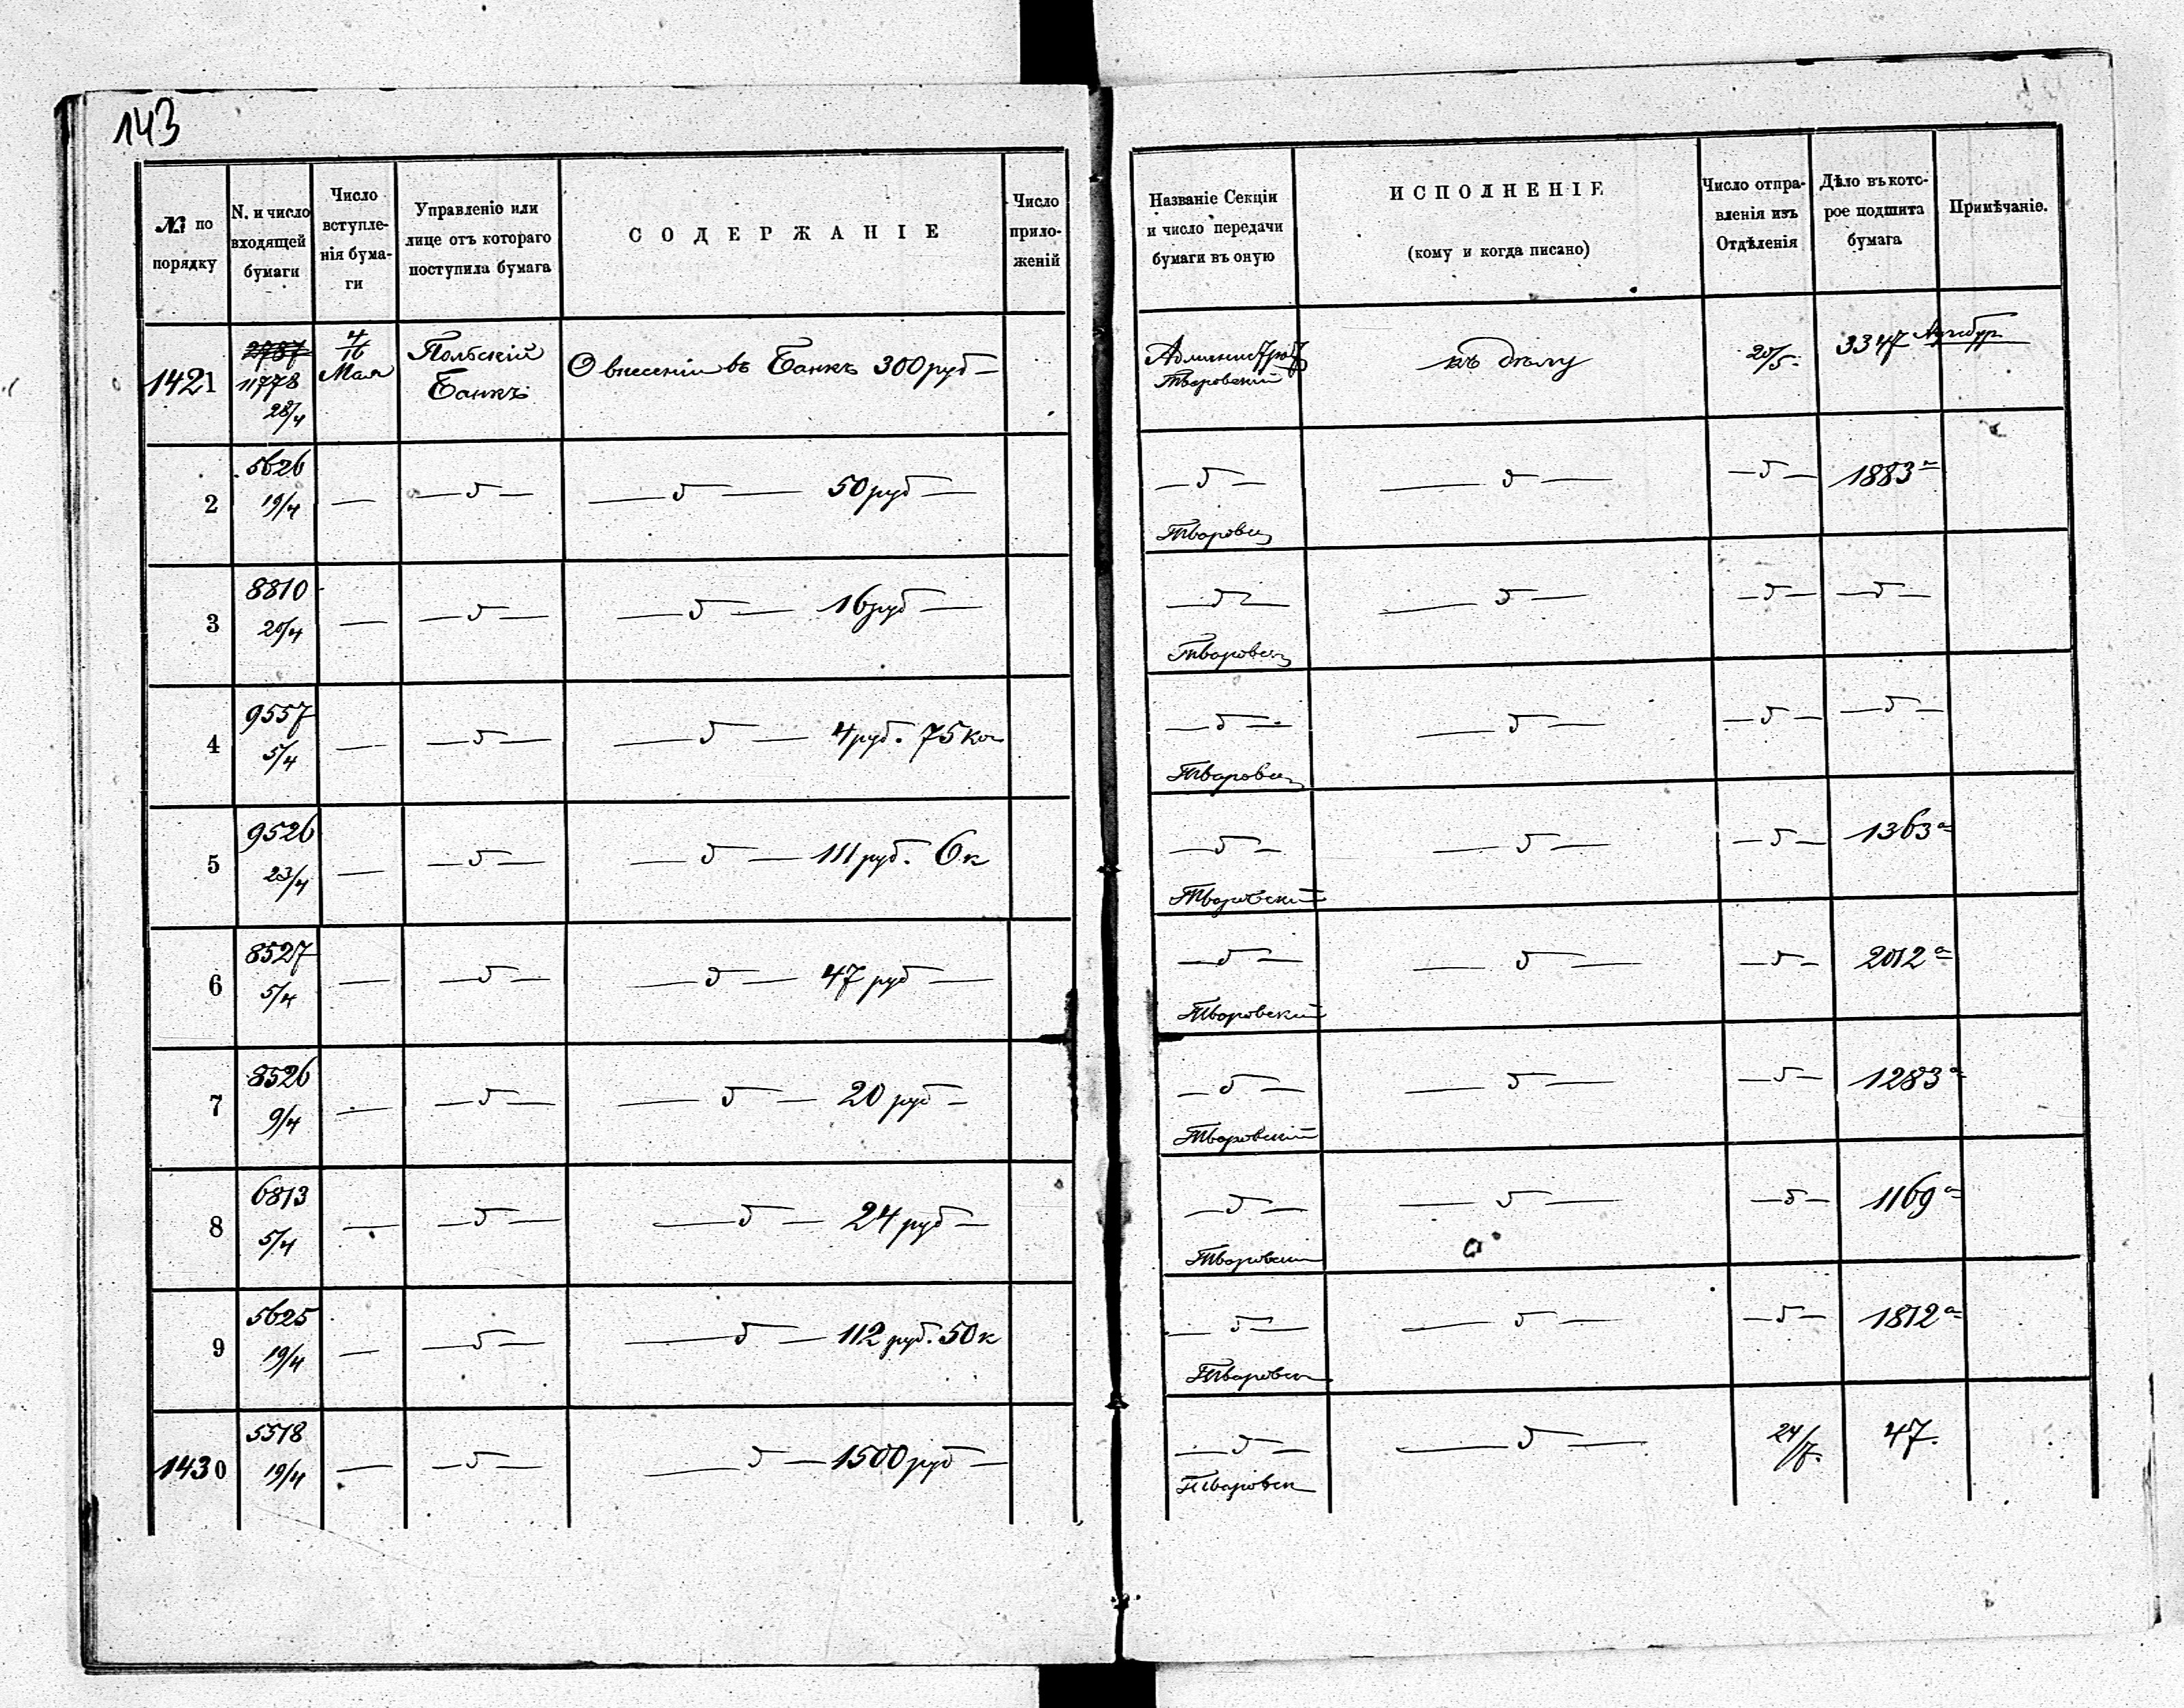 143
№ по порядку
N. и число входящей бумаги
Число вступленія бумаги
Управленіо или лице отъ котораго поступила бумага
СОДЕРЖАНІЕ
Число приложеній
Названіе Секціи и число передачи бумаги въ оную
ИСПОЛНЕНІЕ
(кому и когда писано)
Число отправленія изъ Отдѣленія
Дѣло въ которое подшита бумага
Примѣчаніе.
1421 2787 11778 28/4 4/16 Мая Польскій Банкъ О внесеніи въ Банкъ 300 руб — Тваровскій къ дѣлу 20/5. 3347
2 5626 19/4 — — — 50 руб — — — — 1883а
3 8810 20/4 — — — 16 руб — — — — —
4 9557 5/4 — — — 4 руб. 75 коп — — — —
5 9526 23/4 — — — 111 руб. 6 к — Тваровскій — — 1363а
6 8527 5/4 — — — 47 руб — — Тваровскій — — 2012а
7 8526 9/4 — — — 20 руб — — Тваровскій — — 1283а
8 6813 5/4 — — — 24 руб — — — — 1169а
9 5625 19/4 — — — 112 руб. 50 к — — — 1812а
1430 5518 19/4 — — — 1500 руб — — — 24/7. 47.